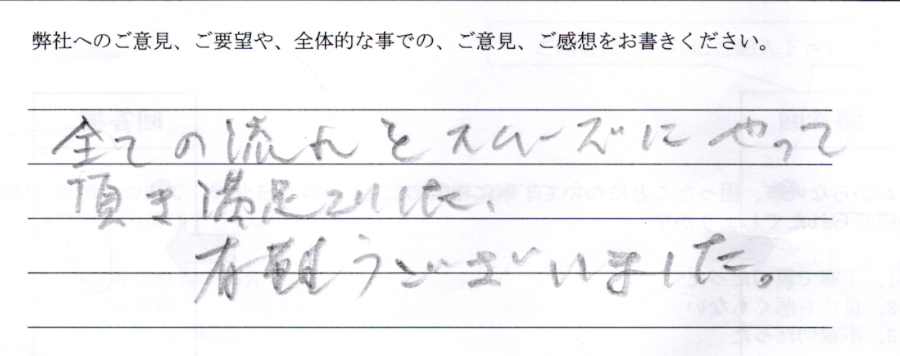 弊社へのご意見、ご要望や、全体的な事での、ご意見、ご感想をお書きください。
全ての流れをスムーズにやって
頂き満足でした、
有難うございました。